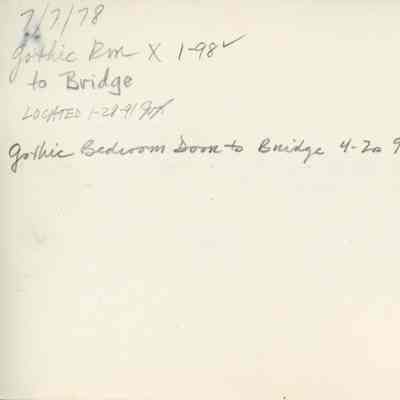 7/7/78
Gothic Rm X 1-98 ✓
to Bridge
LOCATED 1-28-91
Gothic Bedroom Door to Bridge 4-20 9